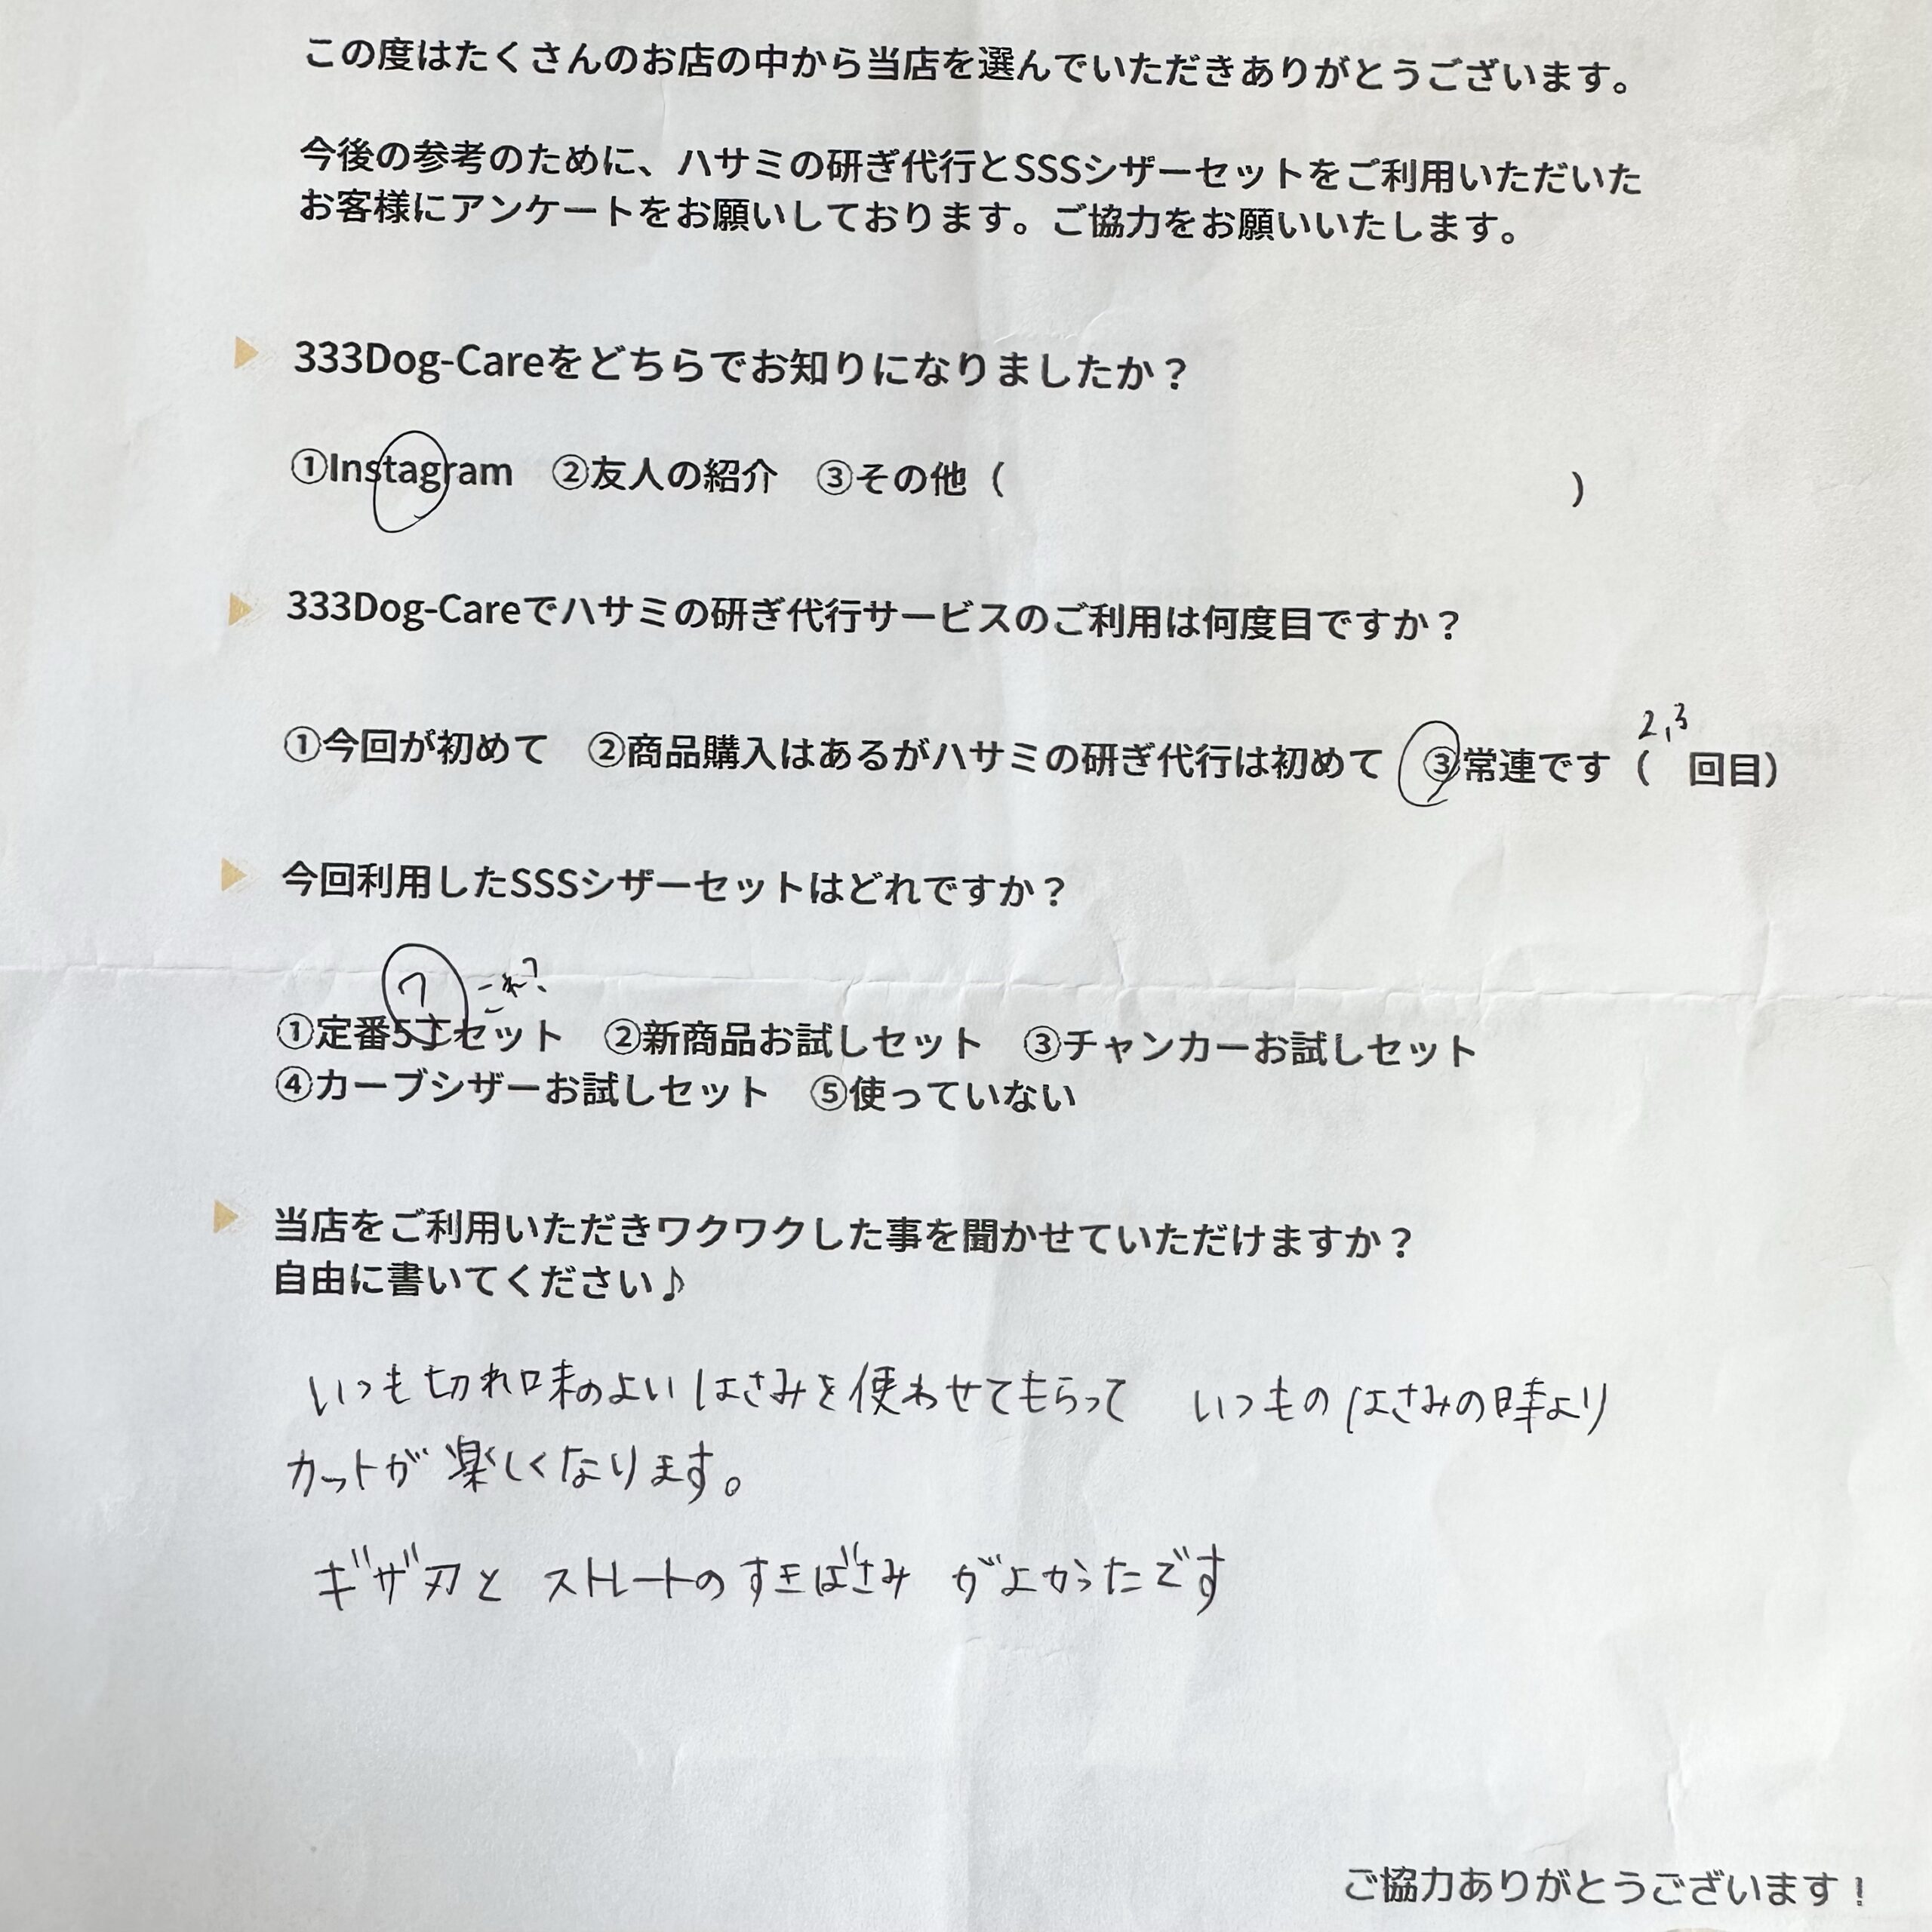 この度はたくさんのお店の中から当店を選んでいただきありがとうございます。
今後の参考のために、ハサミの研ぎ代行とSSSシザーセットをご利用いただいた
お客様にアンケートをお願いしております。ご協力をお願いいたします。
333Dog-Careをどちらでお知りになりましたか？
①Instagram　②友人の紹介　③その他（　　　）
333Dog-Careでハサミの研ぎ代行サービスのご利用は何度目ですか？
2,3
①今回が初めて　②商品購入はあるがハサミの研ぎ代行は初めて　③常連です（　回目）
今回利用したSSSシザーセットはどれですか？
これ？
①定番5丁セット　②新商品お試しセット　③チャンカーお試しセット
④カーブシザーお試しセット　⑤使っていない
当店をご利用いただきワクワクした事を聞かせていただけますか？
自由に書いてください♪
いつも切れ味のよいはさみを使わせてもらって　いつものはさみの時より
カットが楽しくなります。
ギザ刃と　ストレートのすきばさみ　がよかったです
ご協力ありがとうございます！